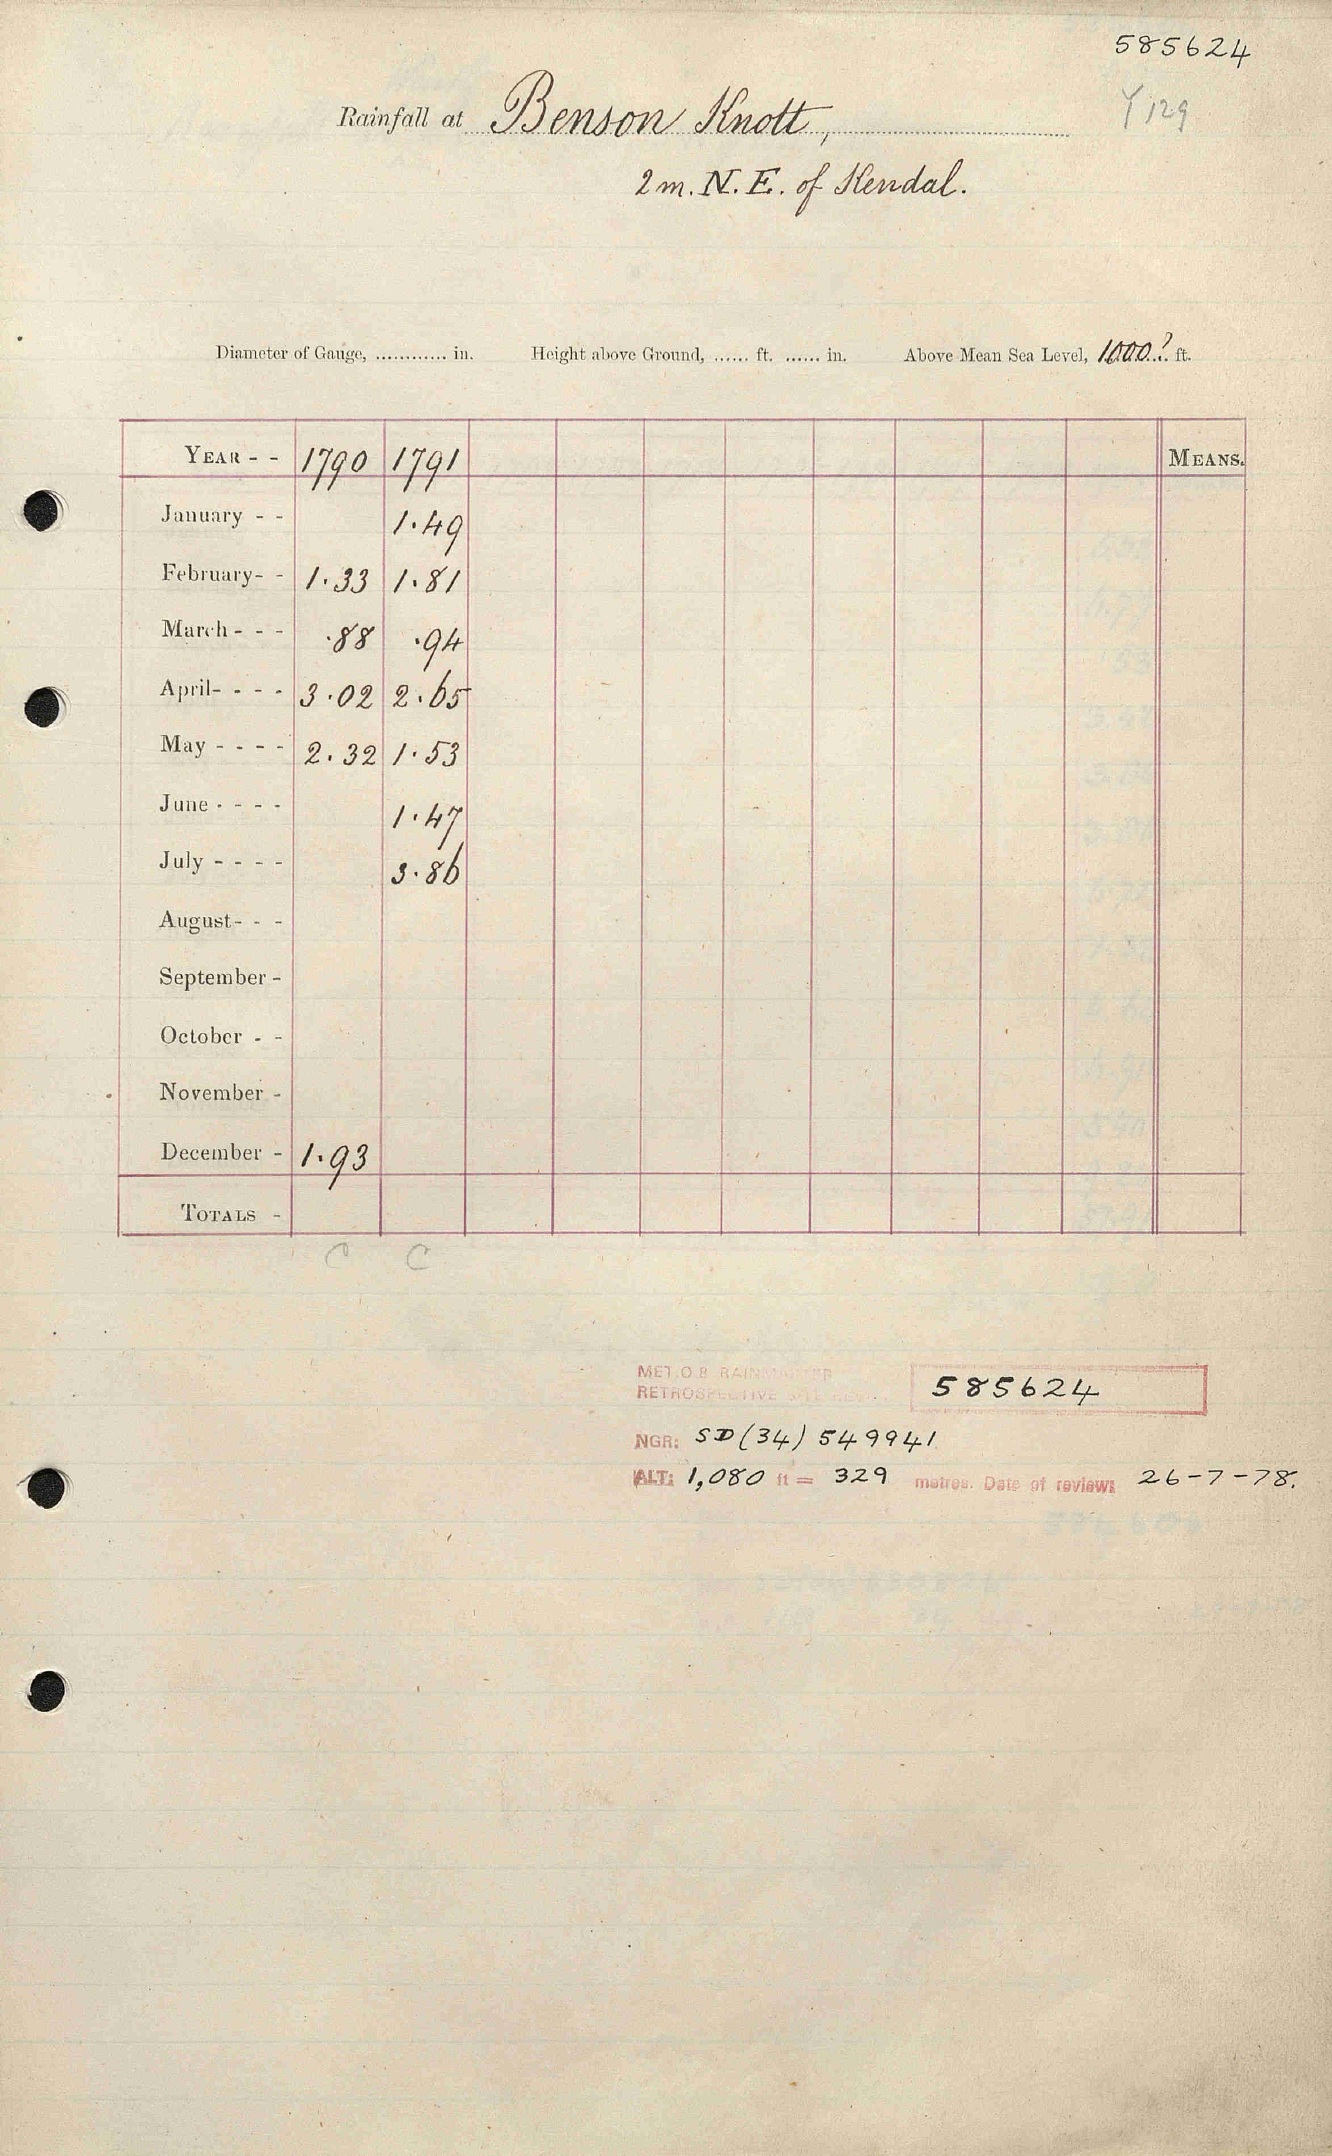 585624
Rainfall at Benson Knott,
Y 129
2 m. N. E. of Kendal.
Diameter of Gauge, ............ in. Height above Ground, ...... ft. ...... in. Above Mean Sea Level, 1000? ft.
YEAR - - 1790 1791 MEANS.
January - - 1.49
February - - 1.33 1.81
March - - - .88 .94
April - - - - 3.02 2.65
May - - - - 2.32 1.53
June - - - - 1.47
July - - - - 3.86
August - - -
September -
October - -
November -
December - 1.93
TOTALS -
C C
MET.O.8
RETROSPECTIVE 585624
NGR: SD (34) 549941
ALT: 1,080 ft = 329 metres. Date of review: 26-7-78.